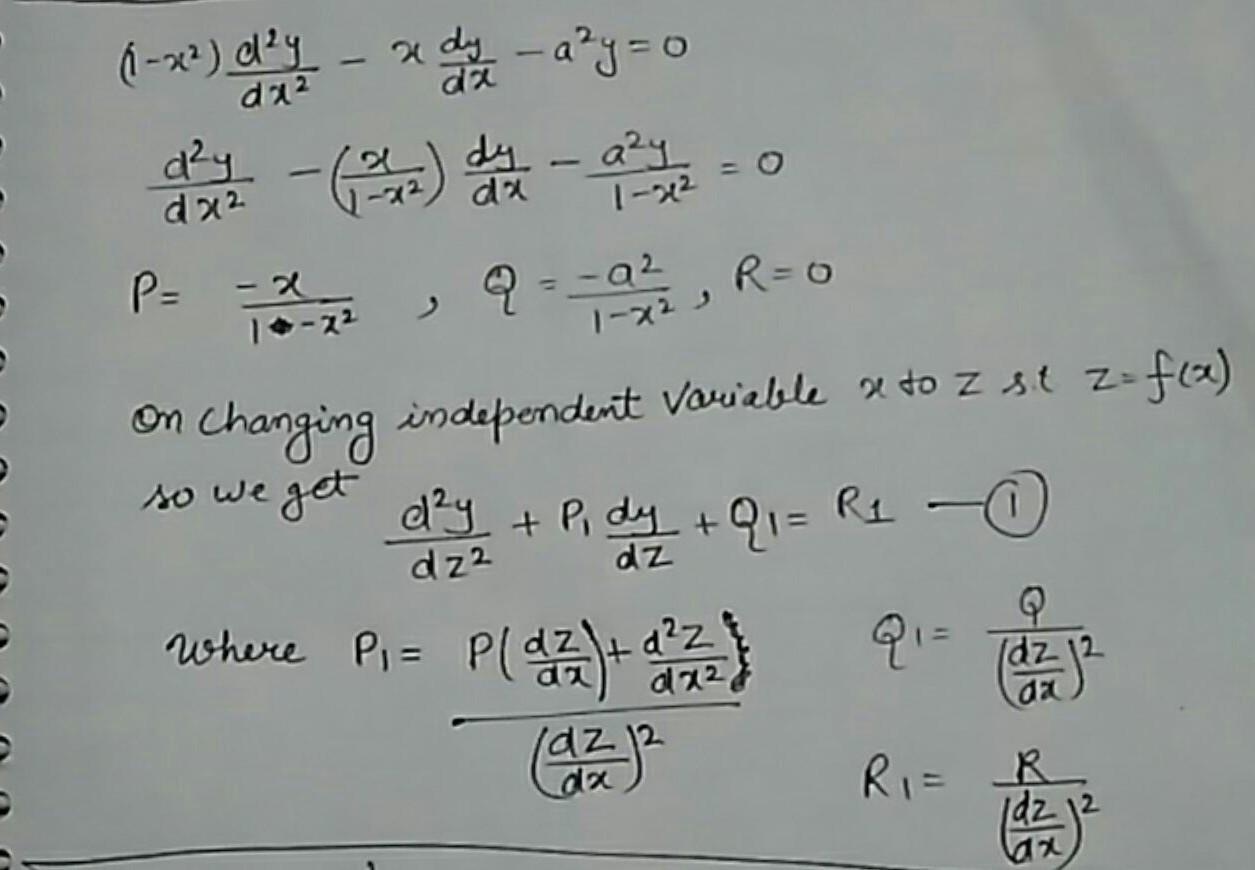 (1-x²) d²y/dx² - x dy/dx - a²y = 0
d²y/dx² - (x/1-x²) dy/dx - a²y/1-x² = 0
P = -x/1-x² , Q = -a²/1-x² , R = 0
On changing independent variable x to z s.t z = f(x)
so we get
d²y/dz² + P₁ dy/dz + Q₁ = R₁ — ①
where P₁ = P(dz/dx) + d²z/dx² / (dz/dx)² Q₁ = Q/(dz/dx)²
R₁ = R/(dz/dx)²